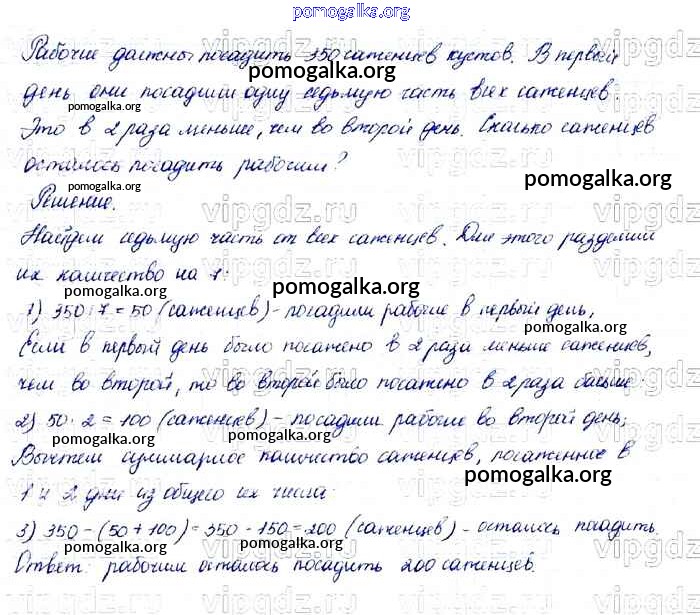 pomogalka.org
Рабочие должны посадить 350 саженцев кустов. В первый
день они посадили одну седьмую часть всех саженцев.
Это в 2 раза меньше, чем во второй день. Сколько саженцев
осталось посадить рабочим?
Решение.
Найдем седьмую часть от всех саженцев. Для этого разделим
их количество на 7:
1) 350:7=50 (саженцев) - посадили рабочие в первый день;
Если в первый день было посажено в 2 раза меньше саженцев,
чем во второй, то во второй было посажено в 2 раза больше:
2) 50·2=100 (саженцев) - посадили рабочие во второй день;
Вычтем суммарное количество саженцев, посаженные в
1 и 2 дни из общего их числа
3) 350-(50+100)=350-150=200 (саженцев) - осталось посадить.
Ответ: рабочим осталось посадить 200 саженцев.